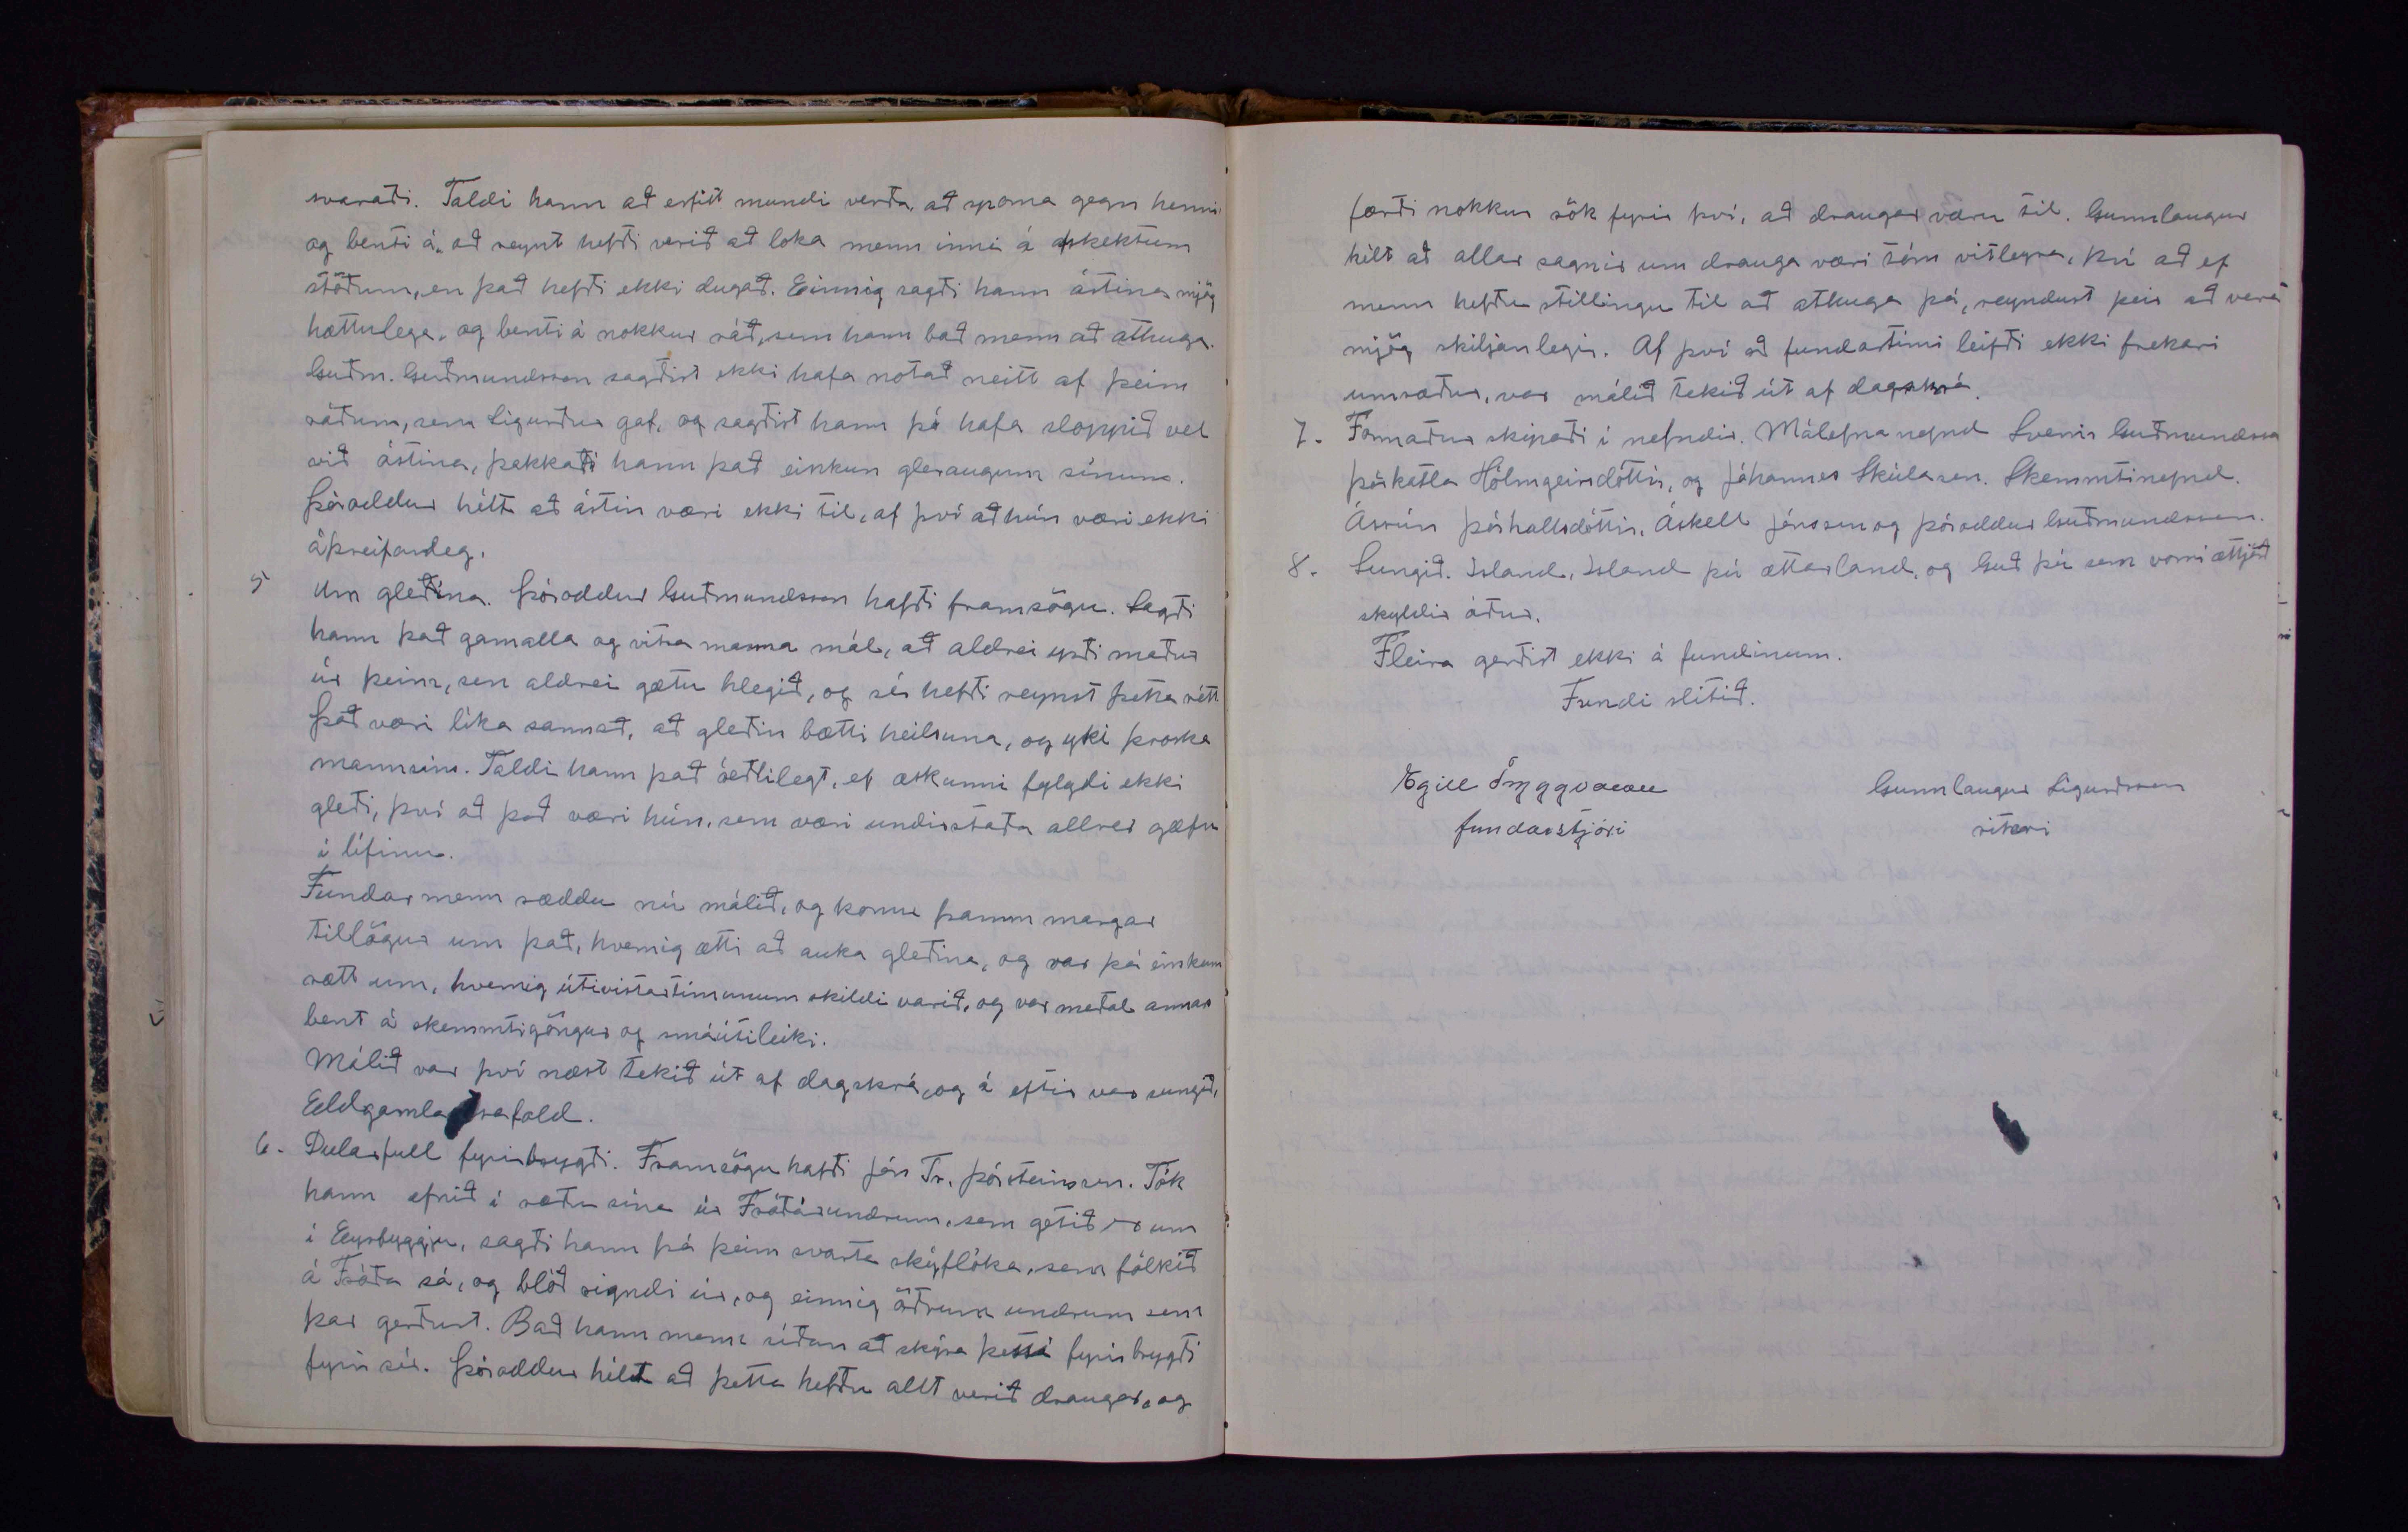 svaraði. Taldi hann að erfitt mundi verða, að sporna gegn henni
og benti á, að reynt hefði verið að loka menn inni á afskektum
stöðum, en það hefði ekki dugað. Einnig sagði hann ástina mjög
hættulega, og benti á nokkur ráð, sem hann bað menn að athuga.
Guðm. Guðmundsson sagðist ekki hafa notað neitt af þeim
ráðum, sem Sigurður gaf, og sagðist hann þó hafa sloppið vel
við ástina, þakkaði hann það einkun gleraugum sínum.
Þóroddur hélt að ástin væri ekki til, af því að hún væri ekki
áþreifanleg.
5 Um gleðina. Þóroddur Guðmundsson hafði framsögu. Sagði
hann það gamalla og vitra manna mál, að aldrei yrði maður
úr þeim, sem aldrei gætu hlegið, og sér hefði reynst þetta rétt
Það væri líka sannað, að gleðin bætti heilsuna, og yki þroska
mannsins. Taldi hann það óeðlilegt, ef æskunni fylgdi ekki
gleði, því að það væri hún, sem væri undirstaða allrar gæfu
í lífinu.
Fundarmenn ræddu nú málið, og komu framm margar
tillögur um það, hvernig ætti að auka gleðina, og var þá einkum
rætt um, hvernig útivistartímunum skildi varið, og var meðal annars
bent á skemmtigöngur og smáútileiki.
Málið var því næst tekið út af dagskrá, og á eftir var sungið,
Eldgamla Ísafold.
6. Dularfull fyrirbrygði. Framsögu hafði Jón Tr. Þórsteinsson. Tók
hann efnið í ræðu sína úr Fróðárundrum, sem getið er um
í Eyrbyggju, sagði hann frá þeim svarta skýflóka, sem fólkið
á Fróða sá, og blóð rigndi úr, og einnig öðrum undrum sem
þar gerðust. Bað hann menn síðan að skýra þessi fyrirbrygði
fyrir sér. Þóroddur hélt að þetta hefðu allt verið draugar, og
færði nokkur rök fyrir því, að draugar væru til. Gunnlaugur
hélt að allar sagnir um drauga væri tóm vitleysa, því að ef
menn hefðu stillingu til að athuga þá, reyndust þeir að vera
mjög skiljanlegir. Af því að fundartími leifði ekki frekari
umræður, var málið tekið út af dagskrá.
7. Formaður skipaði í nefndir. Málefnanefnd Sverrir Guðmundsson
Þórkatla Hólmgeirsdóttir, og Jóhannes Skúlasen. Skemmtinefnd.
Ássrún Þórhallsdóttir, Áskell Jónsson og Þóroddur Guðmundsson.
8. Sungið. Ísland, Ísland þú ættarland, og Guð þú sem vorri ættjörð
skyldir áður.
Fleira gerðist ekki á fundinum.
Fundi slitið.
Egill Tryggvason Gunnlaugur Sigurðsson
fundarstjóri ritari